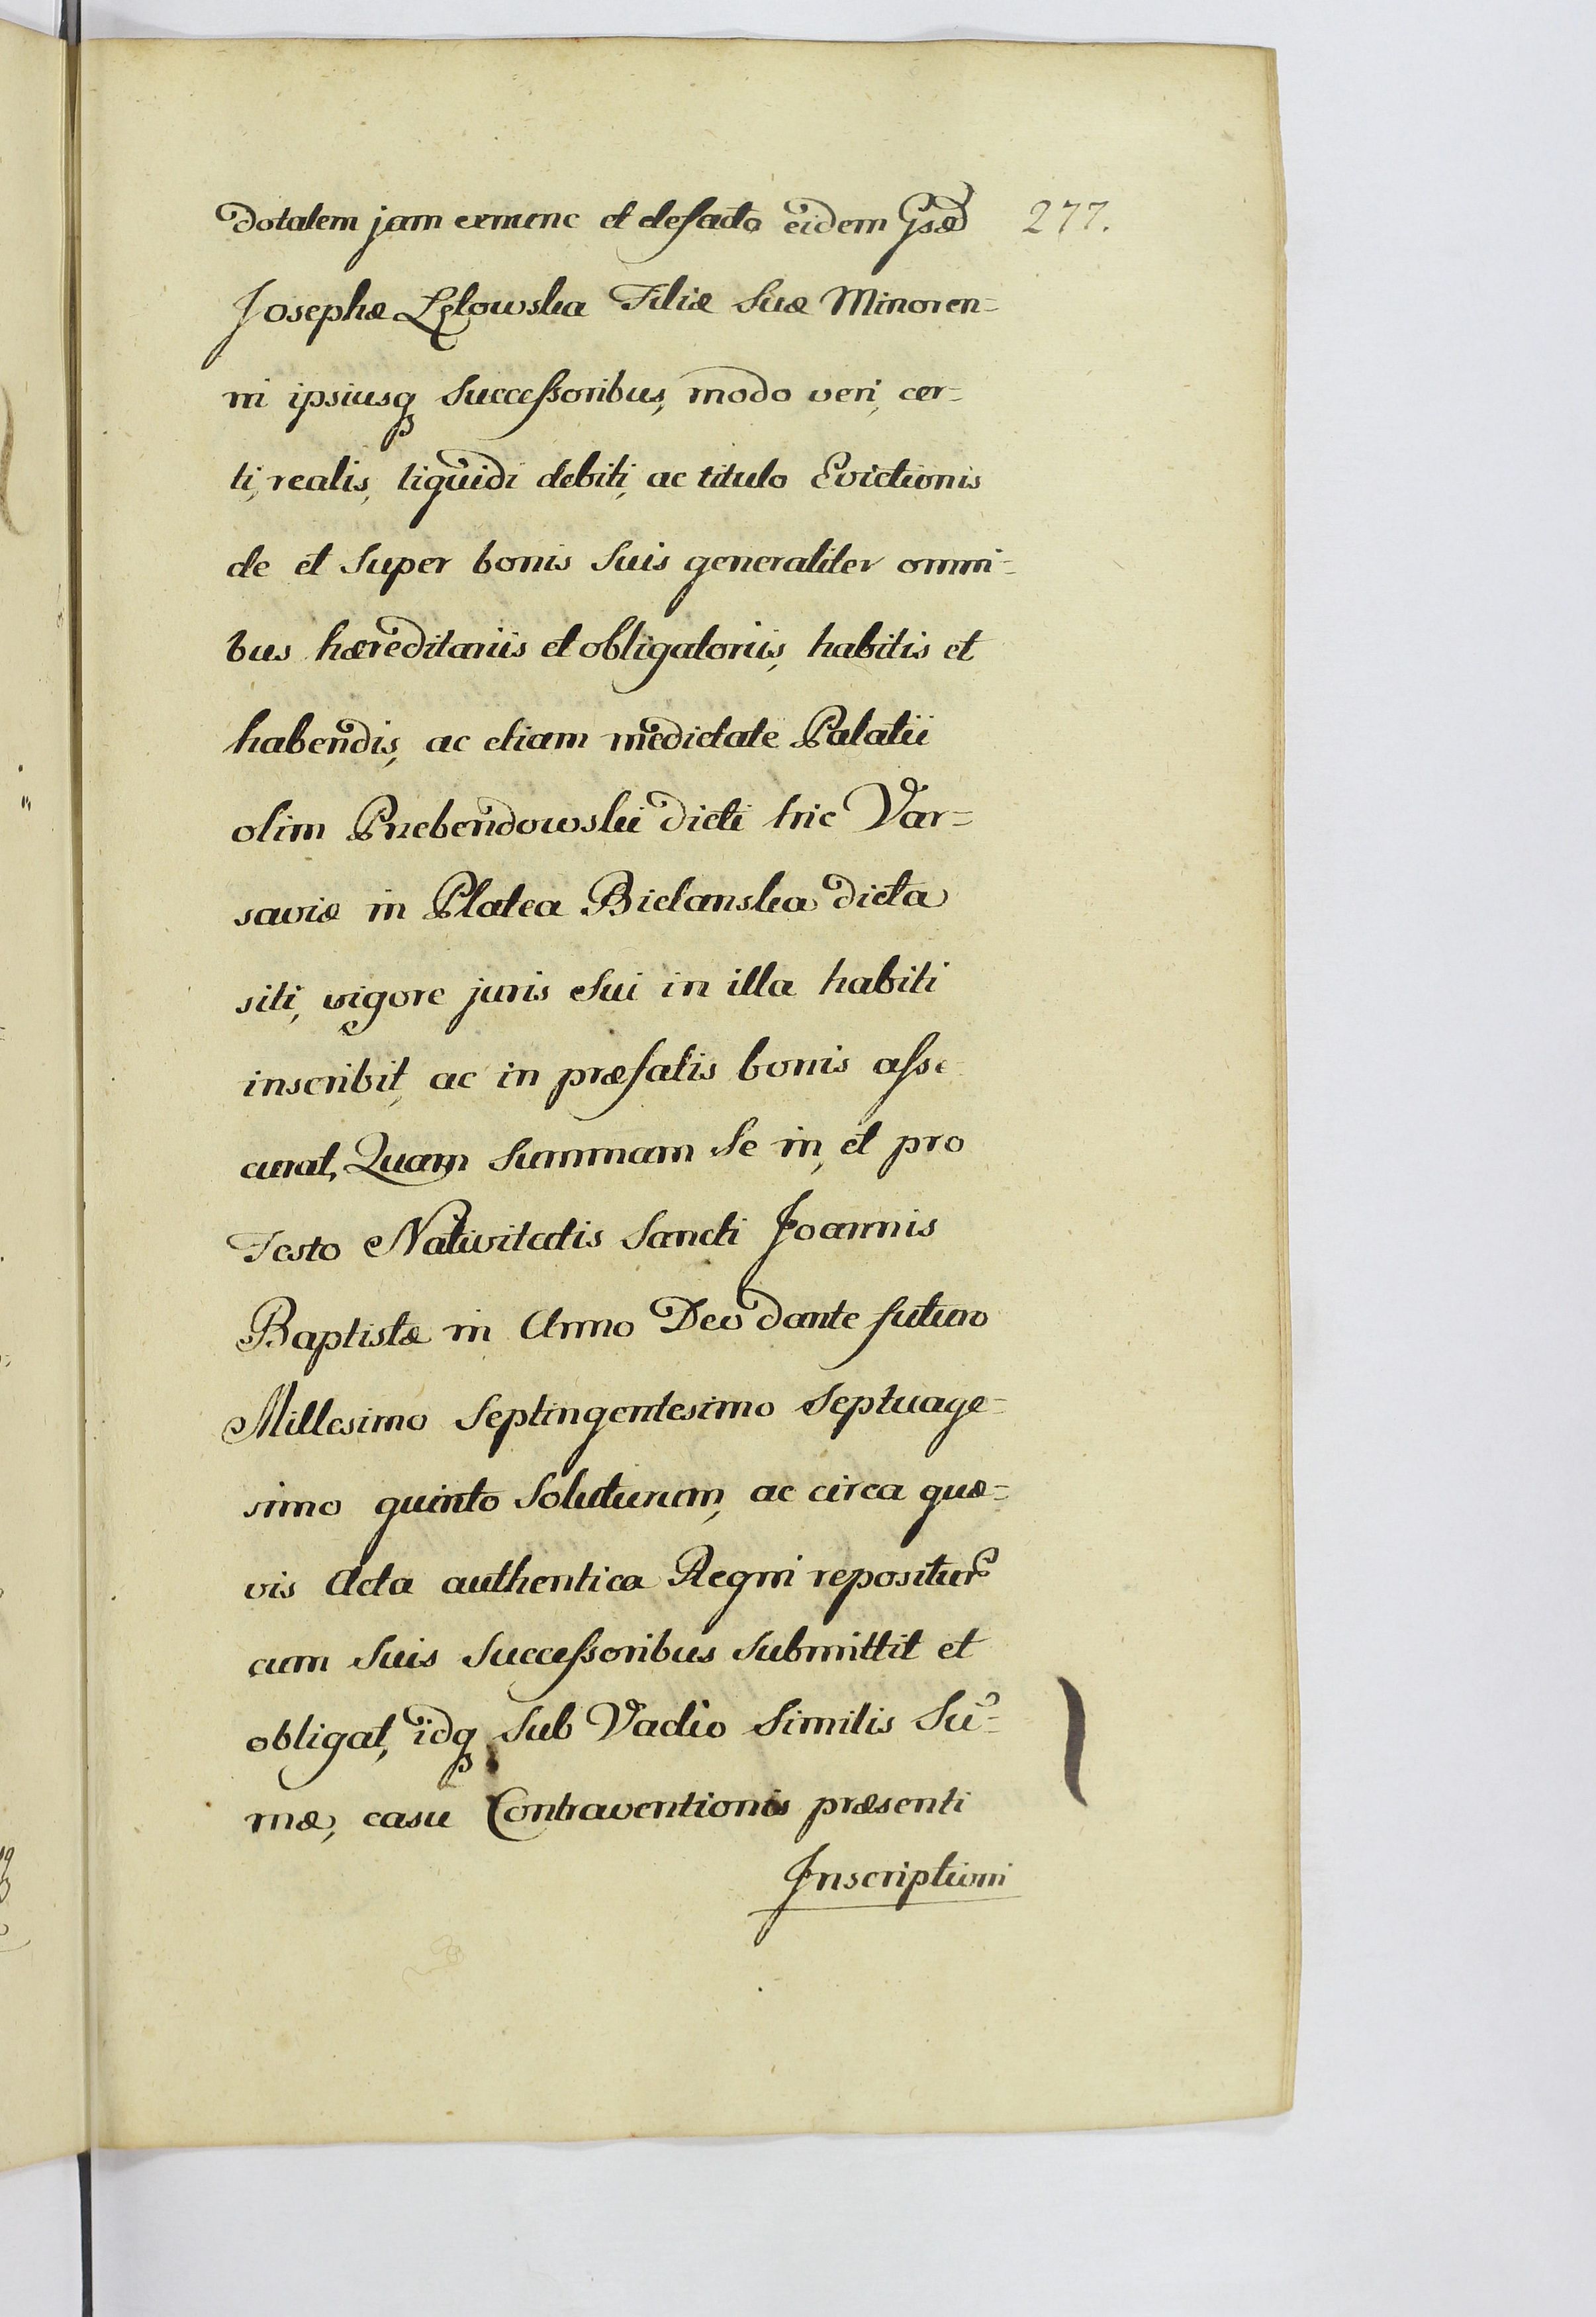 dotalem jam exnunc et defacto eidem Gsæ 277.
Josephæ Lętowska Filiæ Suæ Minoren=
ni ipsiusq Successoribus, modo veri, cer=
ti, realis, liquidi debiti, ac titulo Evictionis
de et Super bonis Suis generaliter omni=
bus hæreditariis et obligatoriis, habitis et
habendis, ac etiam medietate Palatii
olim Przebendowskii dicti hic Var=
saviæ in Platea Bielanska dicta
siti, vigore juris Sui in illa habiti
inscribit, ac in præfatis bonis asse
curat, Quam Summam Se in, et pro
Festo Nativitatis Sancti Joannis
Baptistæ in Anno Deo dante futuro
Millesimo Septingentesimo Septuage=
simo quinto Soluturum, ac circa quæ=
vis Acta authentica Regni repositur
cum Suis Successoribus Submittit et
obligat, idq Sub Vadio Similis Su=
mæ, casu Contraventionis præsenti
Inscriptioni